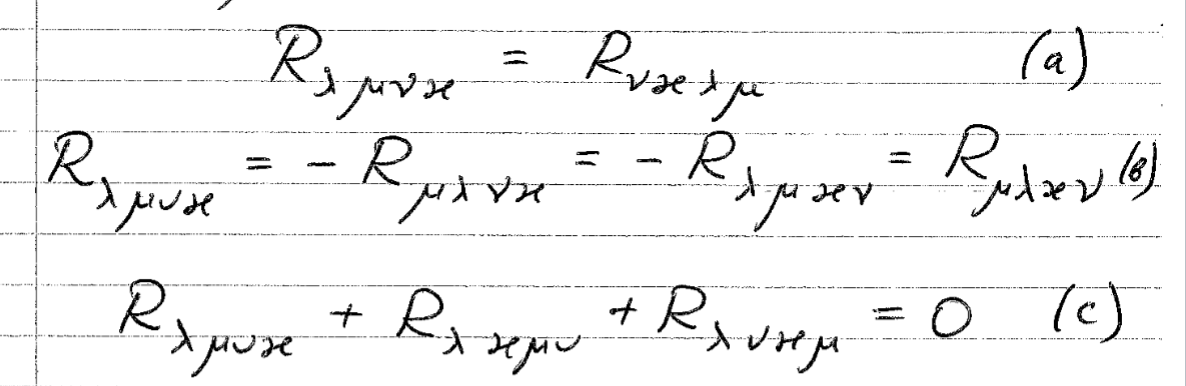 R_{λμνϰ} = R_{νϰλμ} (a)
R_{λμνϰ} = - R_{μλνϰ} = - R_{λμϰν} = R_{μλϰν} (b)
R_{λμνϰ} + R_{λϰμν} + R_{λνϰμ} = 0 (c)